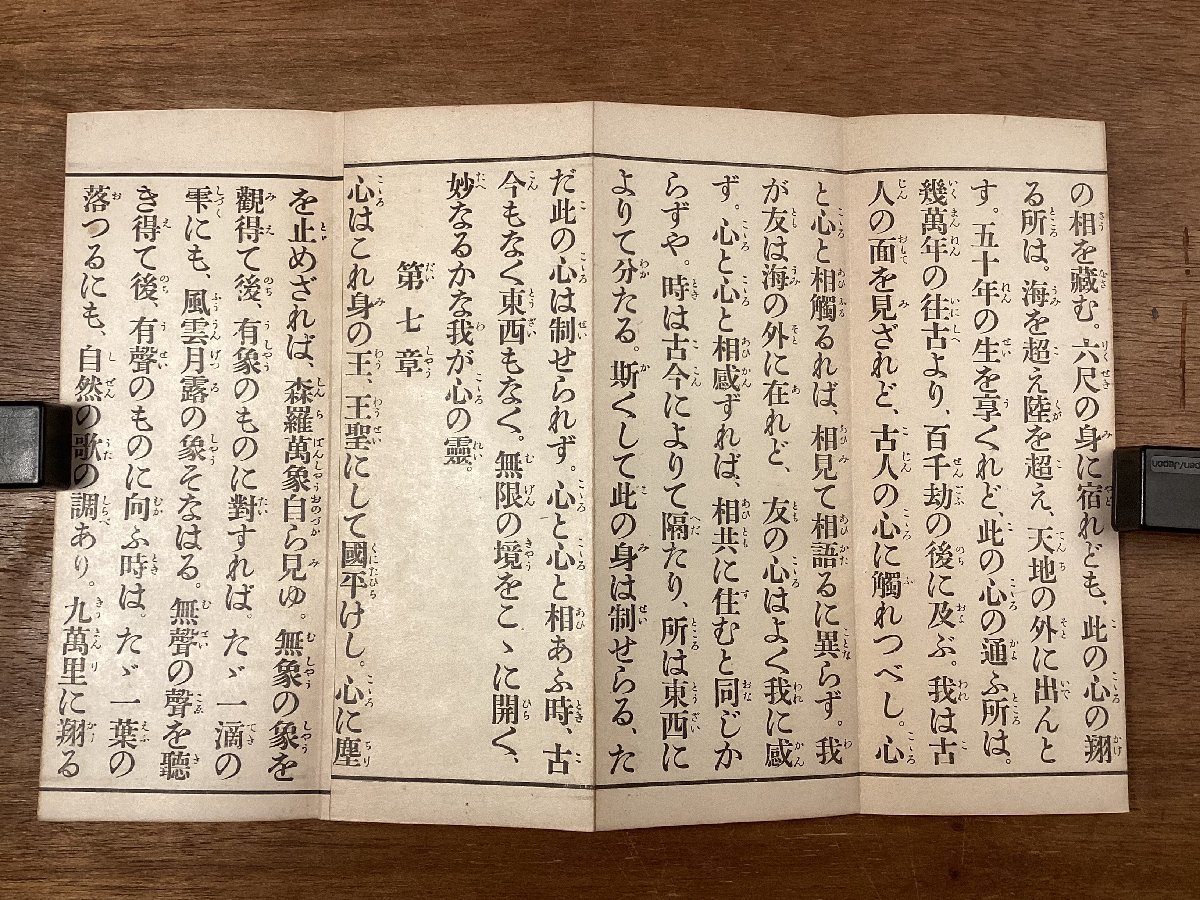 の相を藏む。六尺の身に宿れども、此の心の翔
る所は。海を超え陸を超え、天地の外に出んと
す。五十年の生を享くれど、此の心の通ふ所は。
幾萬年の往古より、百千劫の後に及ぶ。我は古
人の面を見ざれど、古人の心に觸れつべし。心
と心と相觸るれば、相見て相語るに異らず。我
が友は海の外に在れど、友の心はよく我に感
ず。心と心と相感ずれば、相共に住むと同じか
らずや。時は古今によりて隔たり、所は東西に
よりて分たる。斯くして此の身は制せらる、た
だ此の心は制せられず。心と心と相あふ時、古
今もなく東西もなく。無限の境をこゝに開く、
妙なるかな我が心の靈。
第七章
心はこれ身の王、王聖にして國平けし。心に塵
を止めざれば、森羅萬象自ら見ゆ。無象の象を
觀得て後、有象のものに對すれば。たゞ一滴の
雫にも、風雲月露の象そなはる。無聲の聲を聽
き得て後、有聲のものに向ふ時は、たゞ一葉の
落つるにも、自然の歌の調あり。九萬里に翔る
pen/Japon